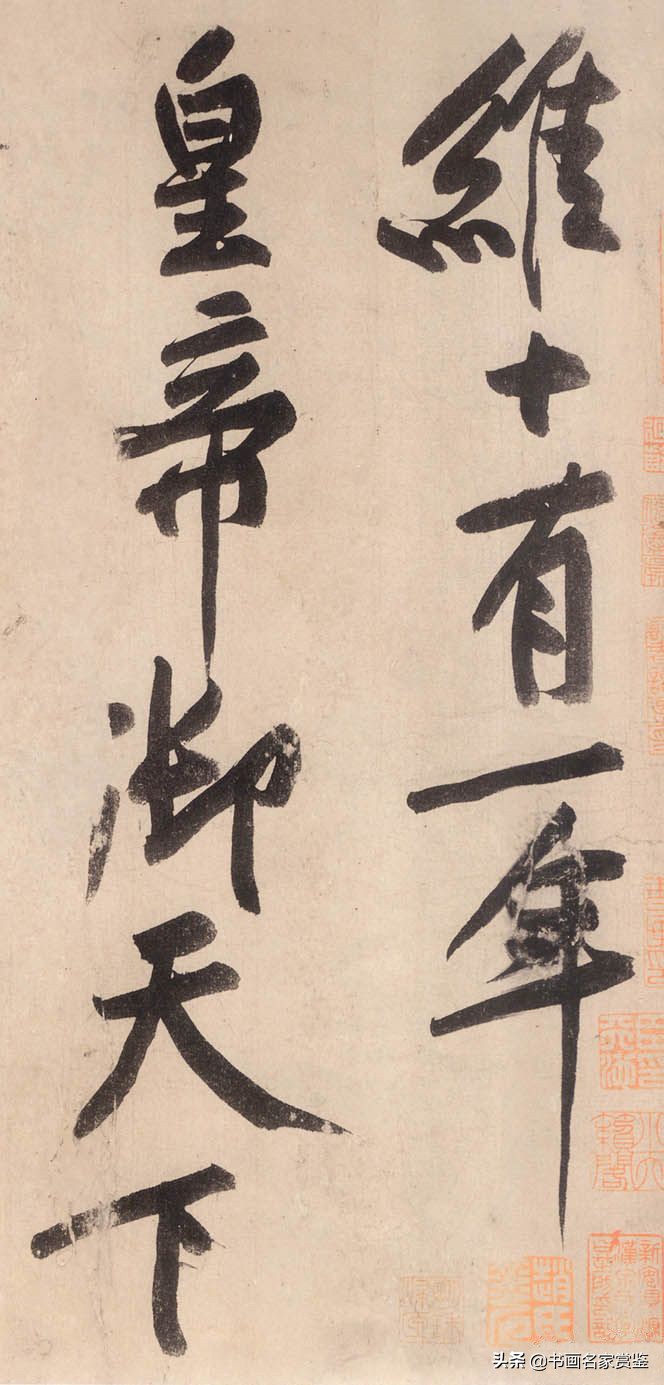 維十有一年
皇帝御天下
头条 @书画名家赏鉴